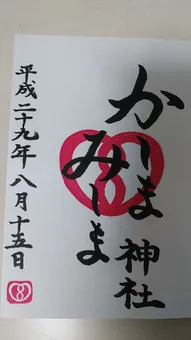 かしま
みしま
神社
平成二十九年八月十五日